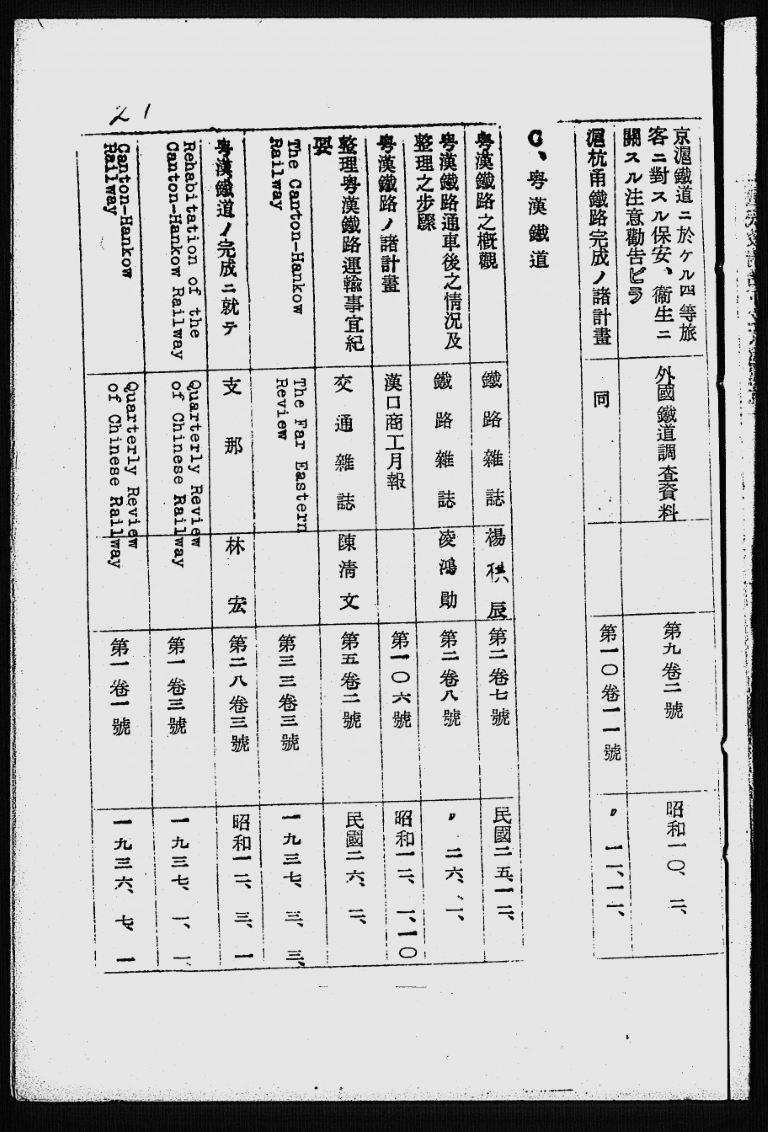 21
京滬鐵道ニ於ケル四等旅
客ニ對スル保安、衞生ニ
關スル注意勸告ビラ
外國鐵道調査資料
第九卷二號
昭和一〇、二、
滬杭甬鐵路完成ノ諸計畫
同
第一〇卷一一號
〃 一一、一一、
G、粤漢鐵道
粤漢鐵路之槪觀
鐵路雜誌
楊祺辰
第二卷七號
民國二五、一二、
粤漢鐵路通車後之情況及
整理之步驟
鐵路雜誌
凌鴻勛
第二卷八號
〃 二六、一、
粤漢鐵路ノ諸計畫
漢口商工月報
第一〇六號
昭和一二、一、一〇
整理粤漢鐵路運輸事宜紀
要
交通雜誌
陳清文
第五卷二號
民國二六、二、
The Canton-Hankow
Railway
The Far Eastern
Review
第三三卷三號
一九三七、三、三、
粤漢鐵道ノ完成ニ就テ
支那
林宏
第二八卷三號
昭和一二、三、一
Rehabitation of the
Canton-Hankow Railway
Quarterly Review
of Chinese Railway
第一卷三號
一九三七、一、一
Canton-Hankow
Railway
Quarterly Review
of Chinese Railway
第一卷一號
一九三六、七、一